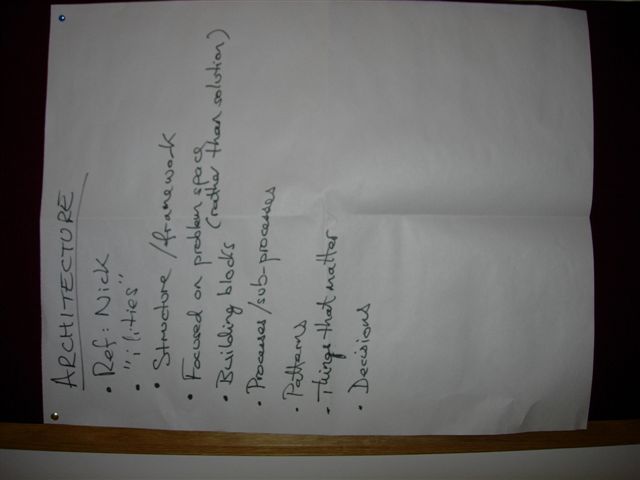 ARCHITECTURE
• Ref: Nick
• "ilities"
• Structure/framework
• Focused on problem space
(rather than solution)
• Building blocks
• Processes/sub-processes
• Patterns
• Things that matter
• Decisions